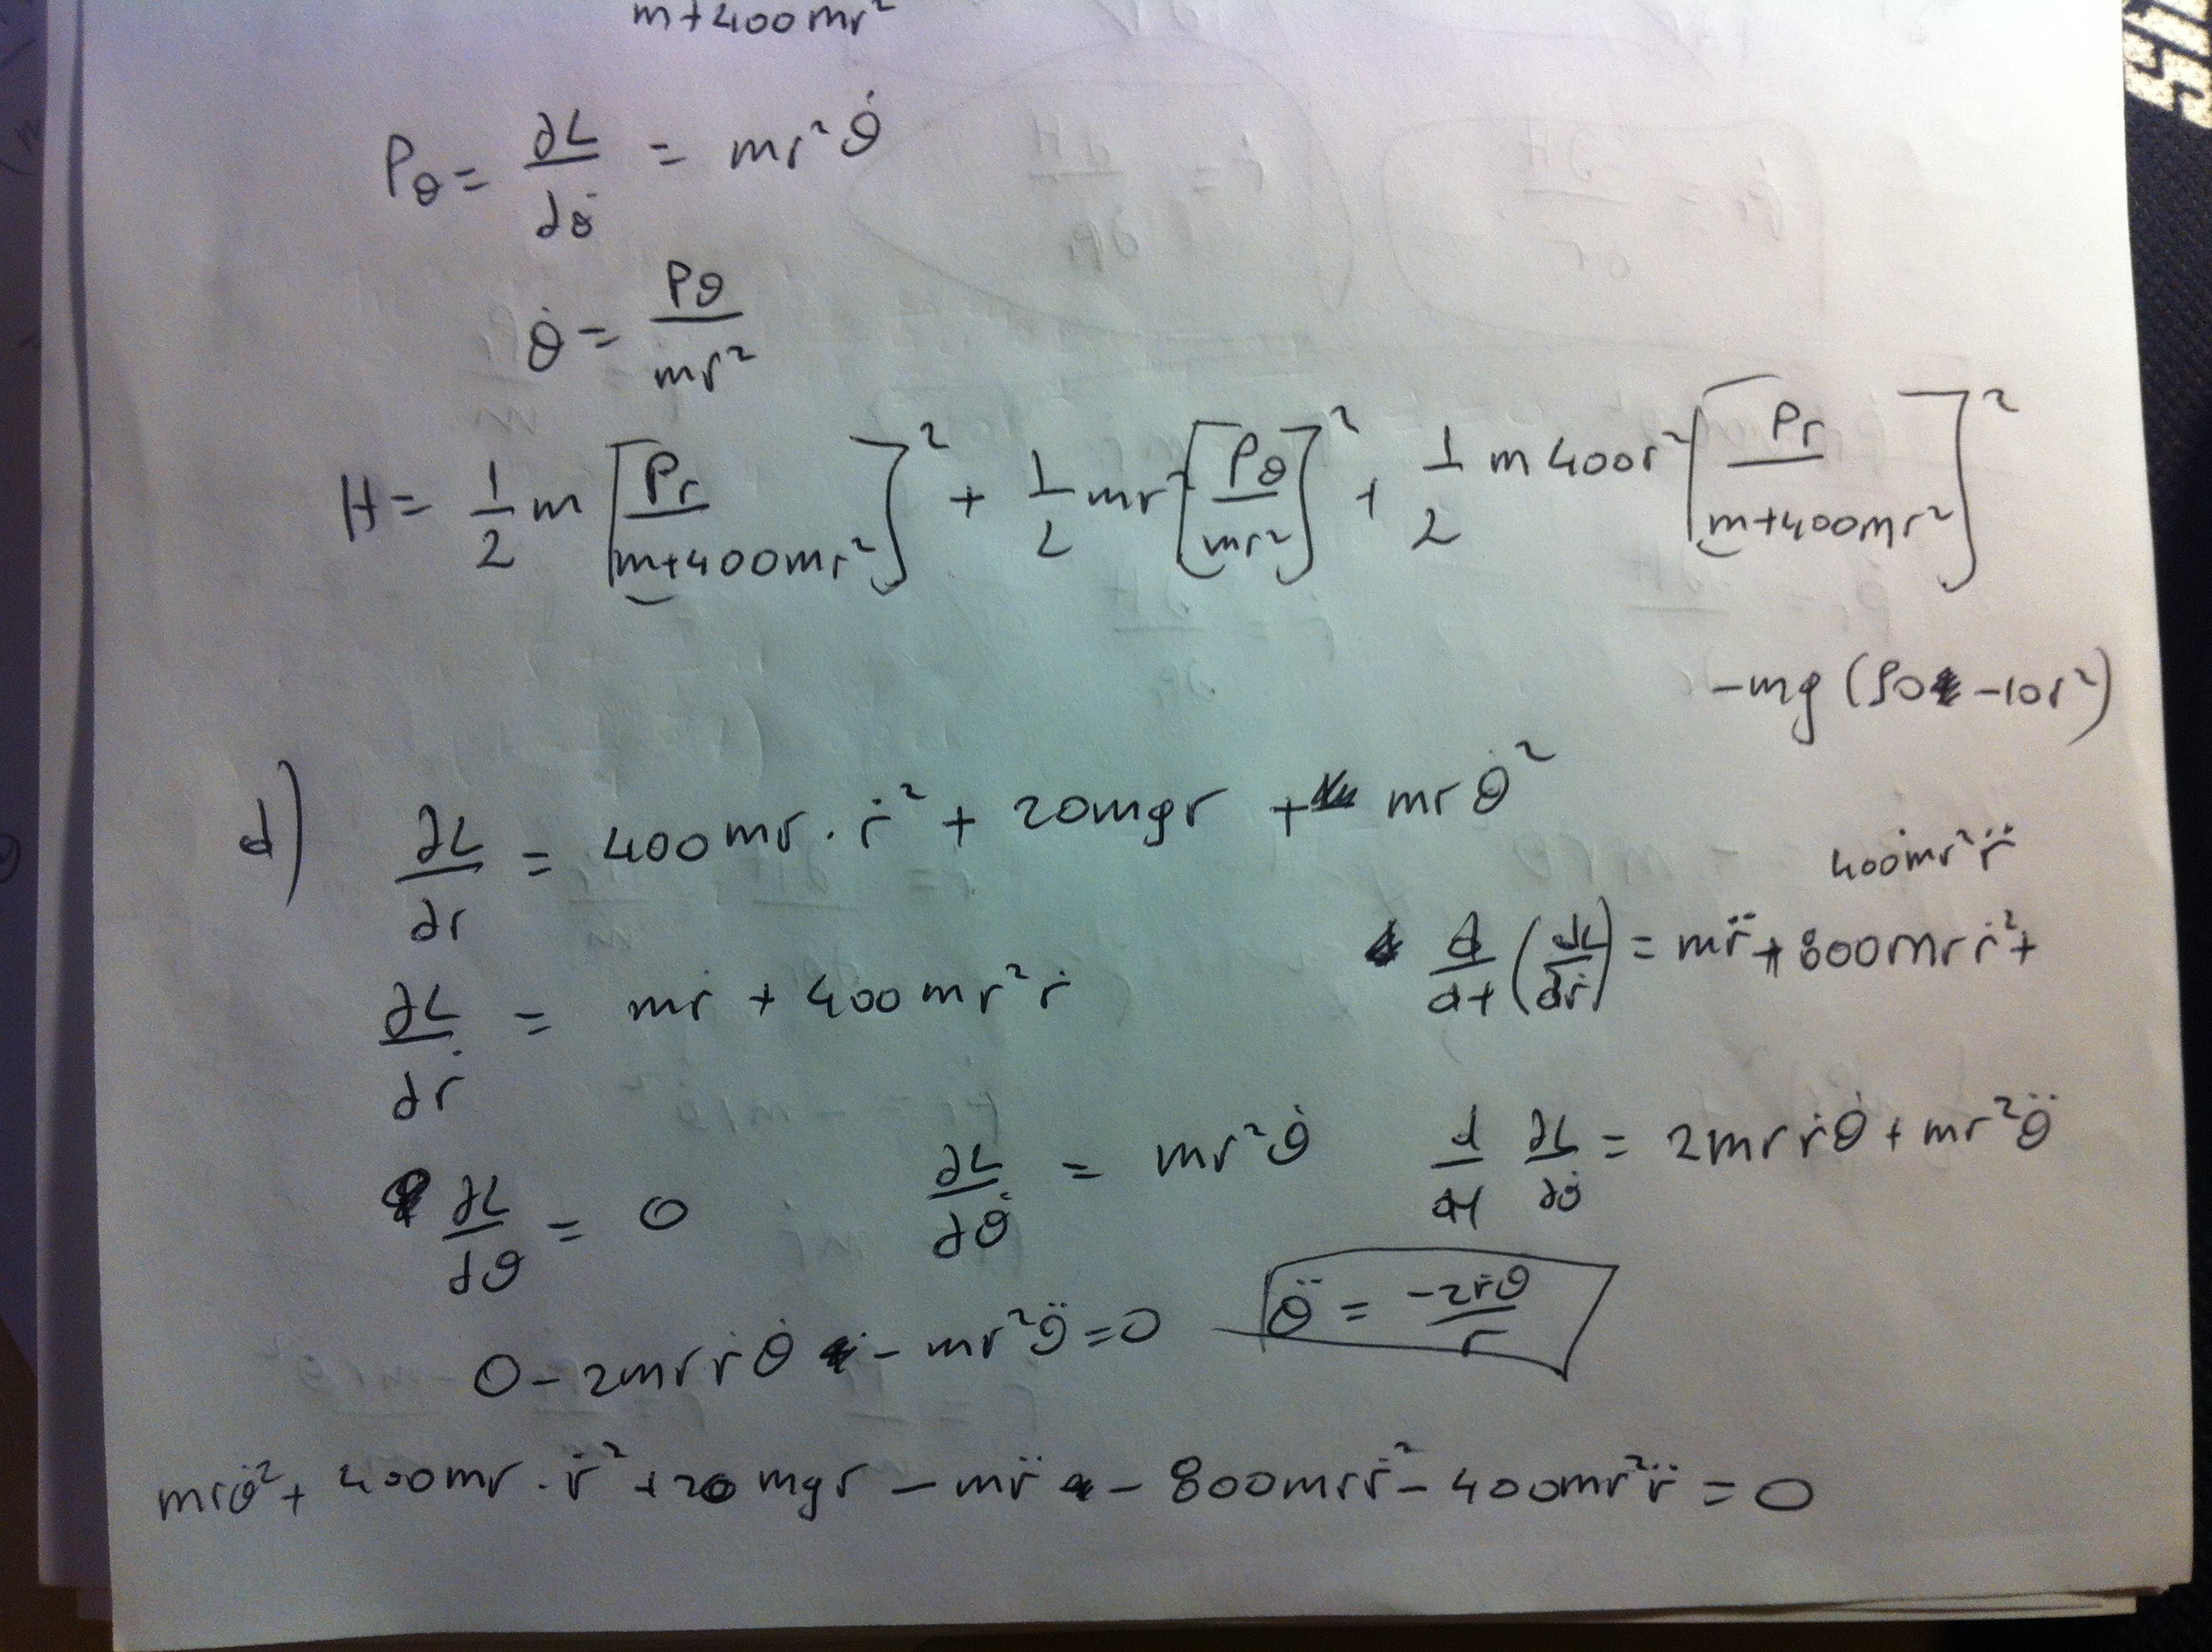 m+400mr²
Pθ = ∂L/dθ̇ = mr²θ̇
θ̇ = Pθ/mr²
H = 1/2 m [Pr/m+400mr²]² + 1/2 mr² [Pθ/mr²]² + 1/2 m400r² [Pr/m+400mr²]²
-10r²)
d) ∂L/∂r = 400mr·ṙ² + 20mgr + mrθ̇²
400mr²r̈
∂L/dṙ = mṙ + 400mr²ṙ
d/dt (dL/dṙ) = mr̈ + 800mrṙ² +
∂L/dθ = 0 ∂L/dθ̇ = mr²θ̇ d/dt ∂L/∂θ̇ = 2mrṙθ̇ + mr²θ̈
0 - 2mrṙθ̇ - mr²θ̈ = 0 θ̈ = -2ṙθ/r
mrθ̇² + 400mr·ṙ² + 20mgr - mr̈ - 800mrṙ² - 400mr²r̈ = 0